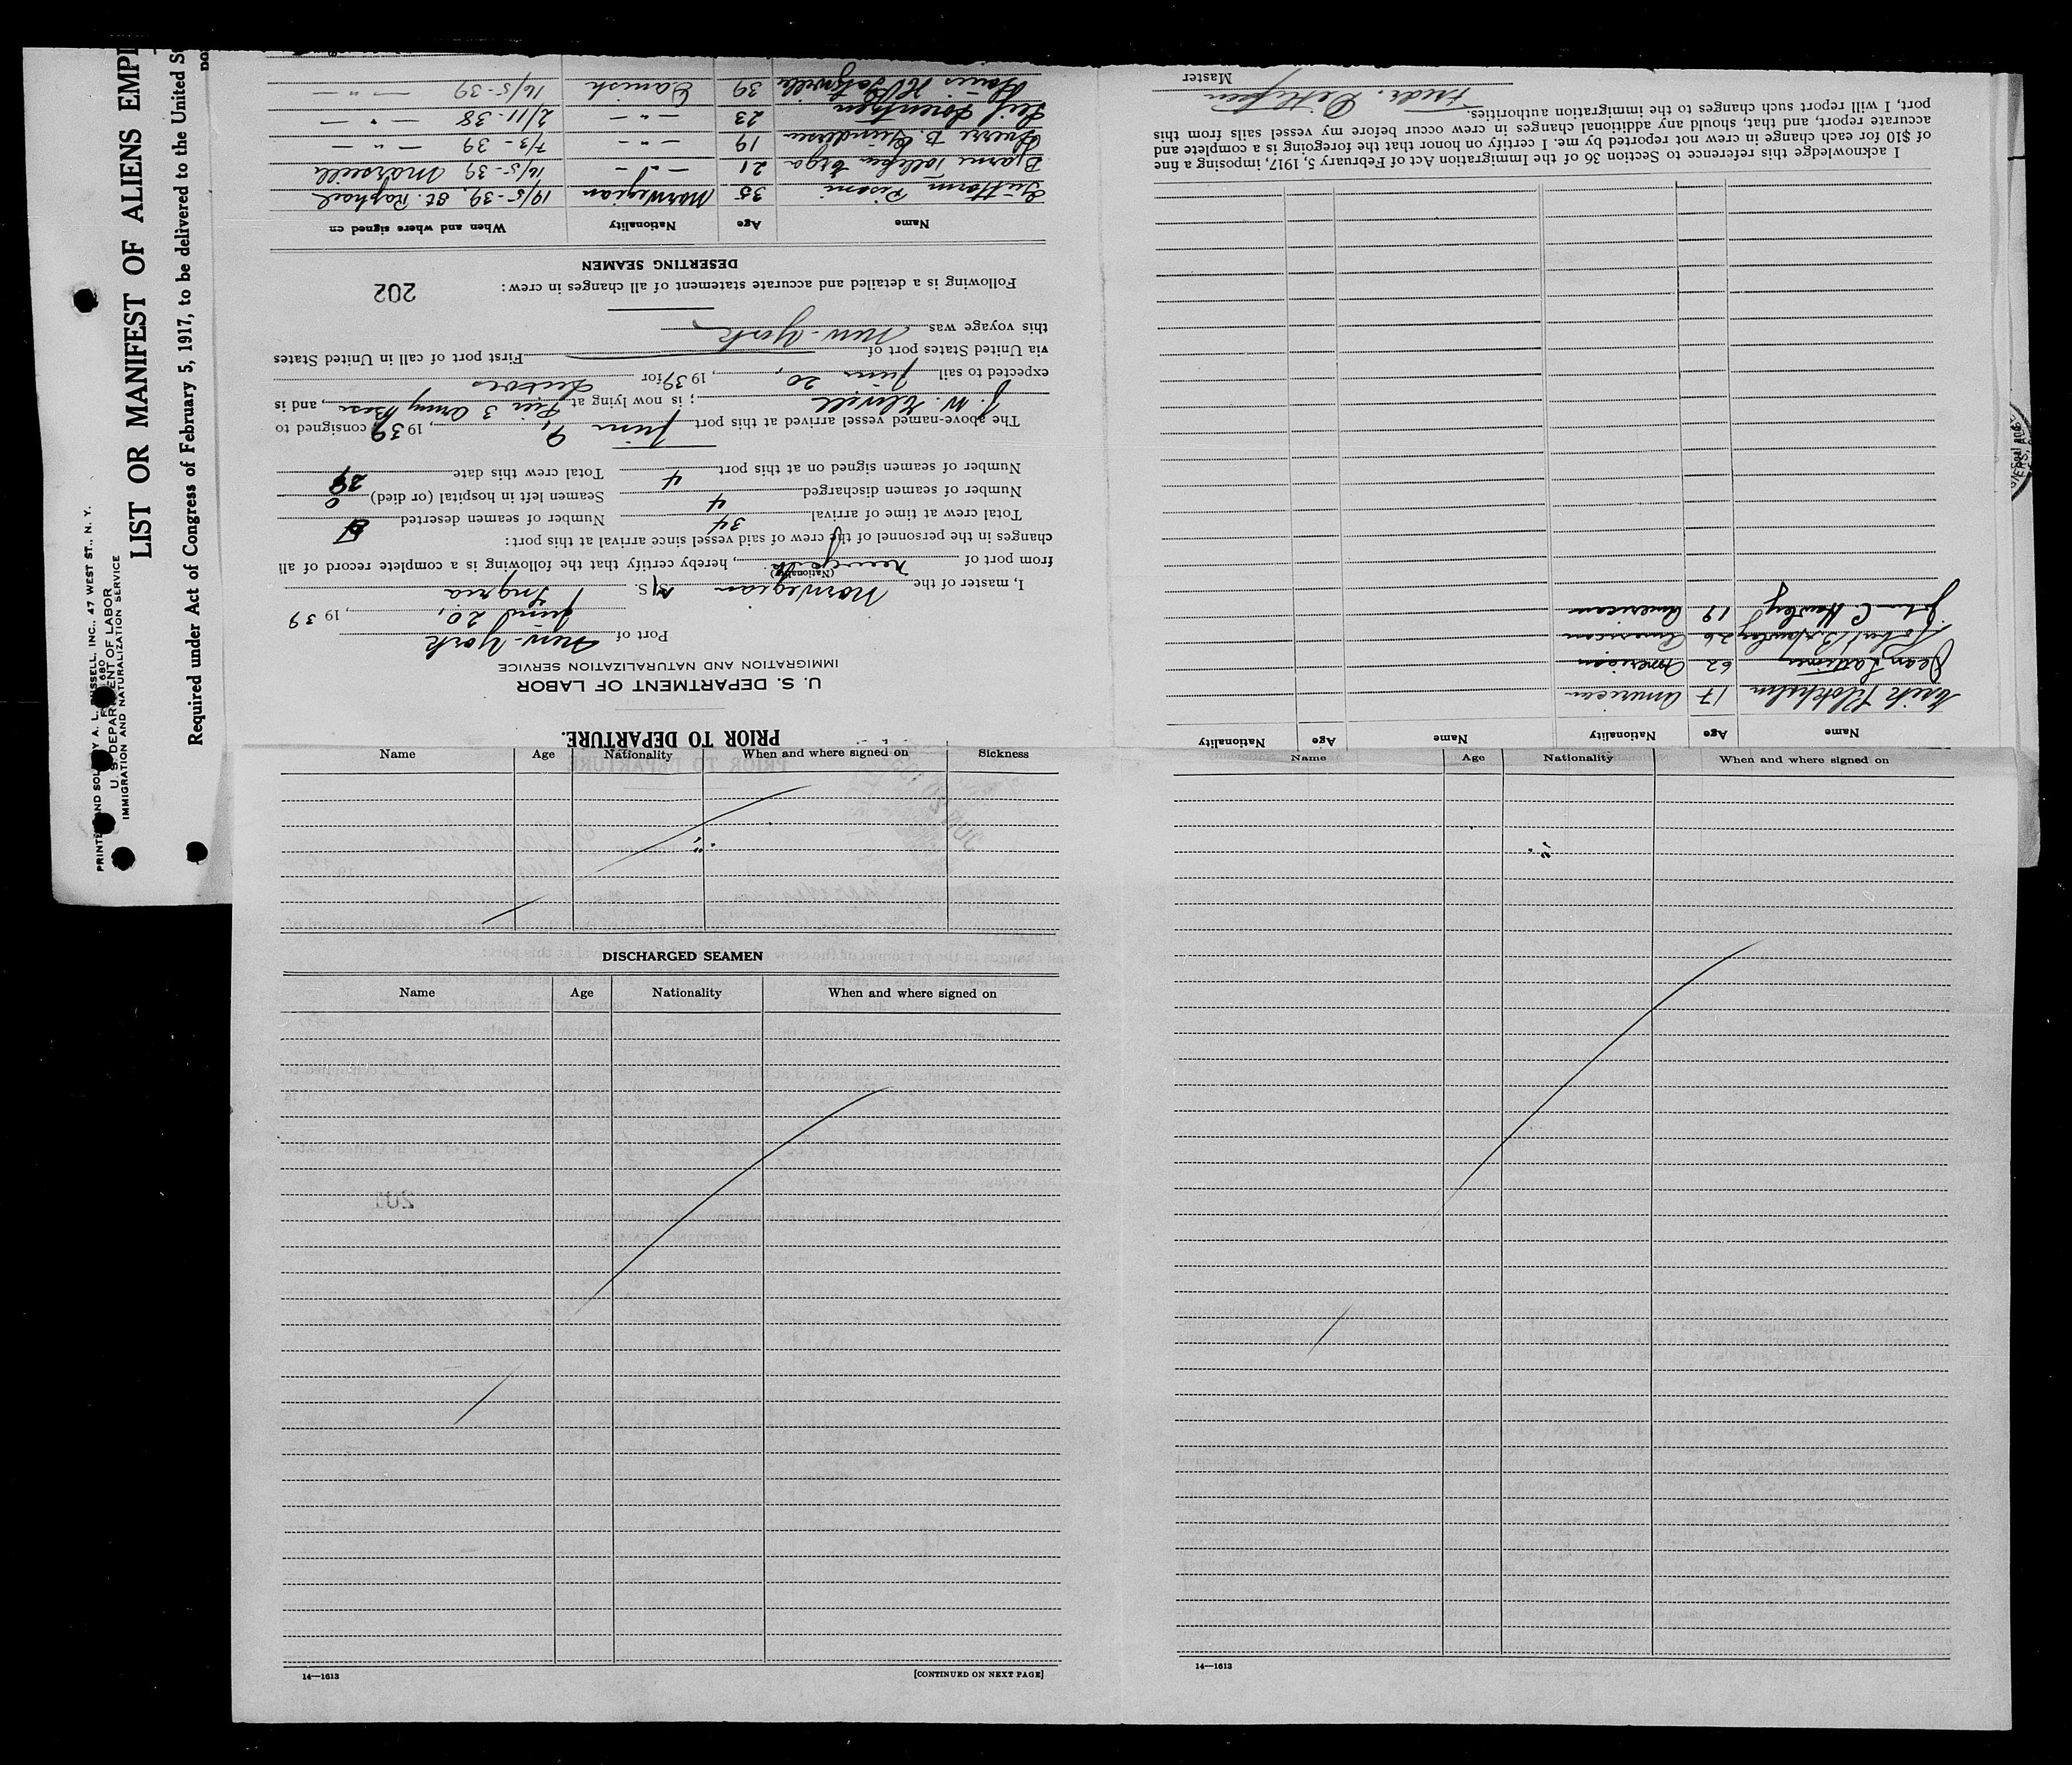 PRINTED AND SOLD BY A. L. RUSSELL, INC., 47 WEST ST., N. Y.
680
U. S. DEPARTMENT OF LABOR
IMMIGRATION AND NATURALIZATION SERVICE
LIST OR MANIFEST OF ALIENS EMPL
Required under Act of Congress of February 5, 1917, to be delivered to the United St
PRIOR TO DEPARTURE.
U. S. DEPARTMENT OF LABOR
IMMIGRATION AND NATURALIZATION SERVICE
Port of New-York
June 20, , 19 39
I, master of the Norwegian M/S. Ingria
(Nationality)
from port of New York , hereby certify that the following is a complete record of all
changes in the personnel of the crew of said vessel since arrival at this port:
Total crew at time of arrival 34 Number of seamen deserted
Number of seamen discharged 4 Seamen left in hospital (or died) 0
Number of seamen signed on at this port 4 Total crew this date 29
The above-named vessel arrived at this port June 9, , 1939 consigned to
J. W. Elwell ; is now lying at Pier 3 Army Base , and is
expected to sail June 20, , 1939 for
via United States port of First port of call in United States
this voyage was New-York
Following is a detailed and accurate statement of all changes in crew: 202
DESERTING SEAMEN
Name Age Nationality When and where signed on
Guttorm 35 Norwegian 19/5-39, St. Raphael
Bjarne Tollefsen 21 — " — 16/5-39 Marseille
Sverre B. Gundersen 19 — " — 7/3-39 — " —
Leif Sorensen 23 — " — 2/11-38 — " —
39 Danish 16/5-39 — " —
Name Age Nationality Name Age Nationality
Erik 17 American
Jean 62 American
Robert Hawley 26 American
John C. Hawley 19 American
I acknowledge this reference to Section 36 of the Immigration Act of February 5, 1917, imposing a fine
of $10 for each change in crew not reported by me. I certify on honor that the foregoing is a complete and
accurate report, and that, should any additional changes in crew occur before my vessel sails from this
port, I will report such changes to the immigration authorities.
Fredr. Ditlefsen
Master
Name Age Nationality When and where signed on Sickness
DISCHARGED SEAMEN
Name Age Nationality When and where signed on
14—1613 [CONTINUED ON NEXT PAGE]
Name Age Nationality When and where signed on
14—1613